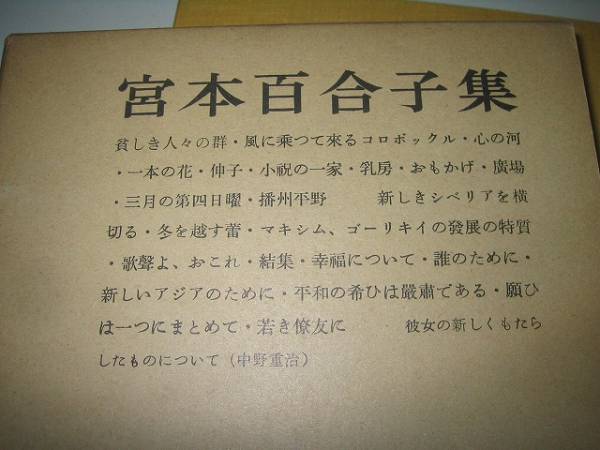 宮本百合子集
貧しき人々の群・風に乗つて來るコロボックル・心の河
・一本の花・伸子・小祝の一家・乳房・おもかげ・廣場
・三月の第四日曜・播州平野　　新しきシベリアを横
切る・冬を越す蕾・マキシム、ゴーリキイの發展の特質
・歌聲よ、おこれ・結集・幸福について・誰のために・
新しいアジアのために・平和の希ひは嚴肅である・願ひ
は一つにまとめて・若き僚友に　　彼女の新しくもたら
したものについて（中野重治）